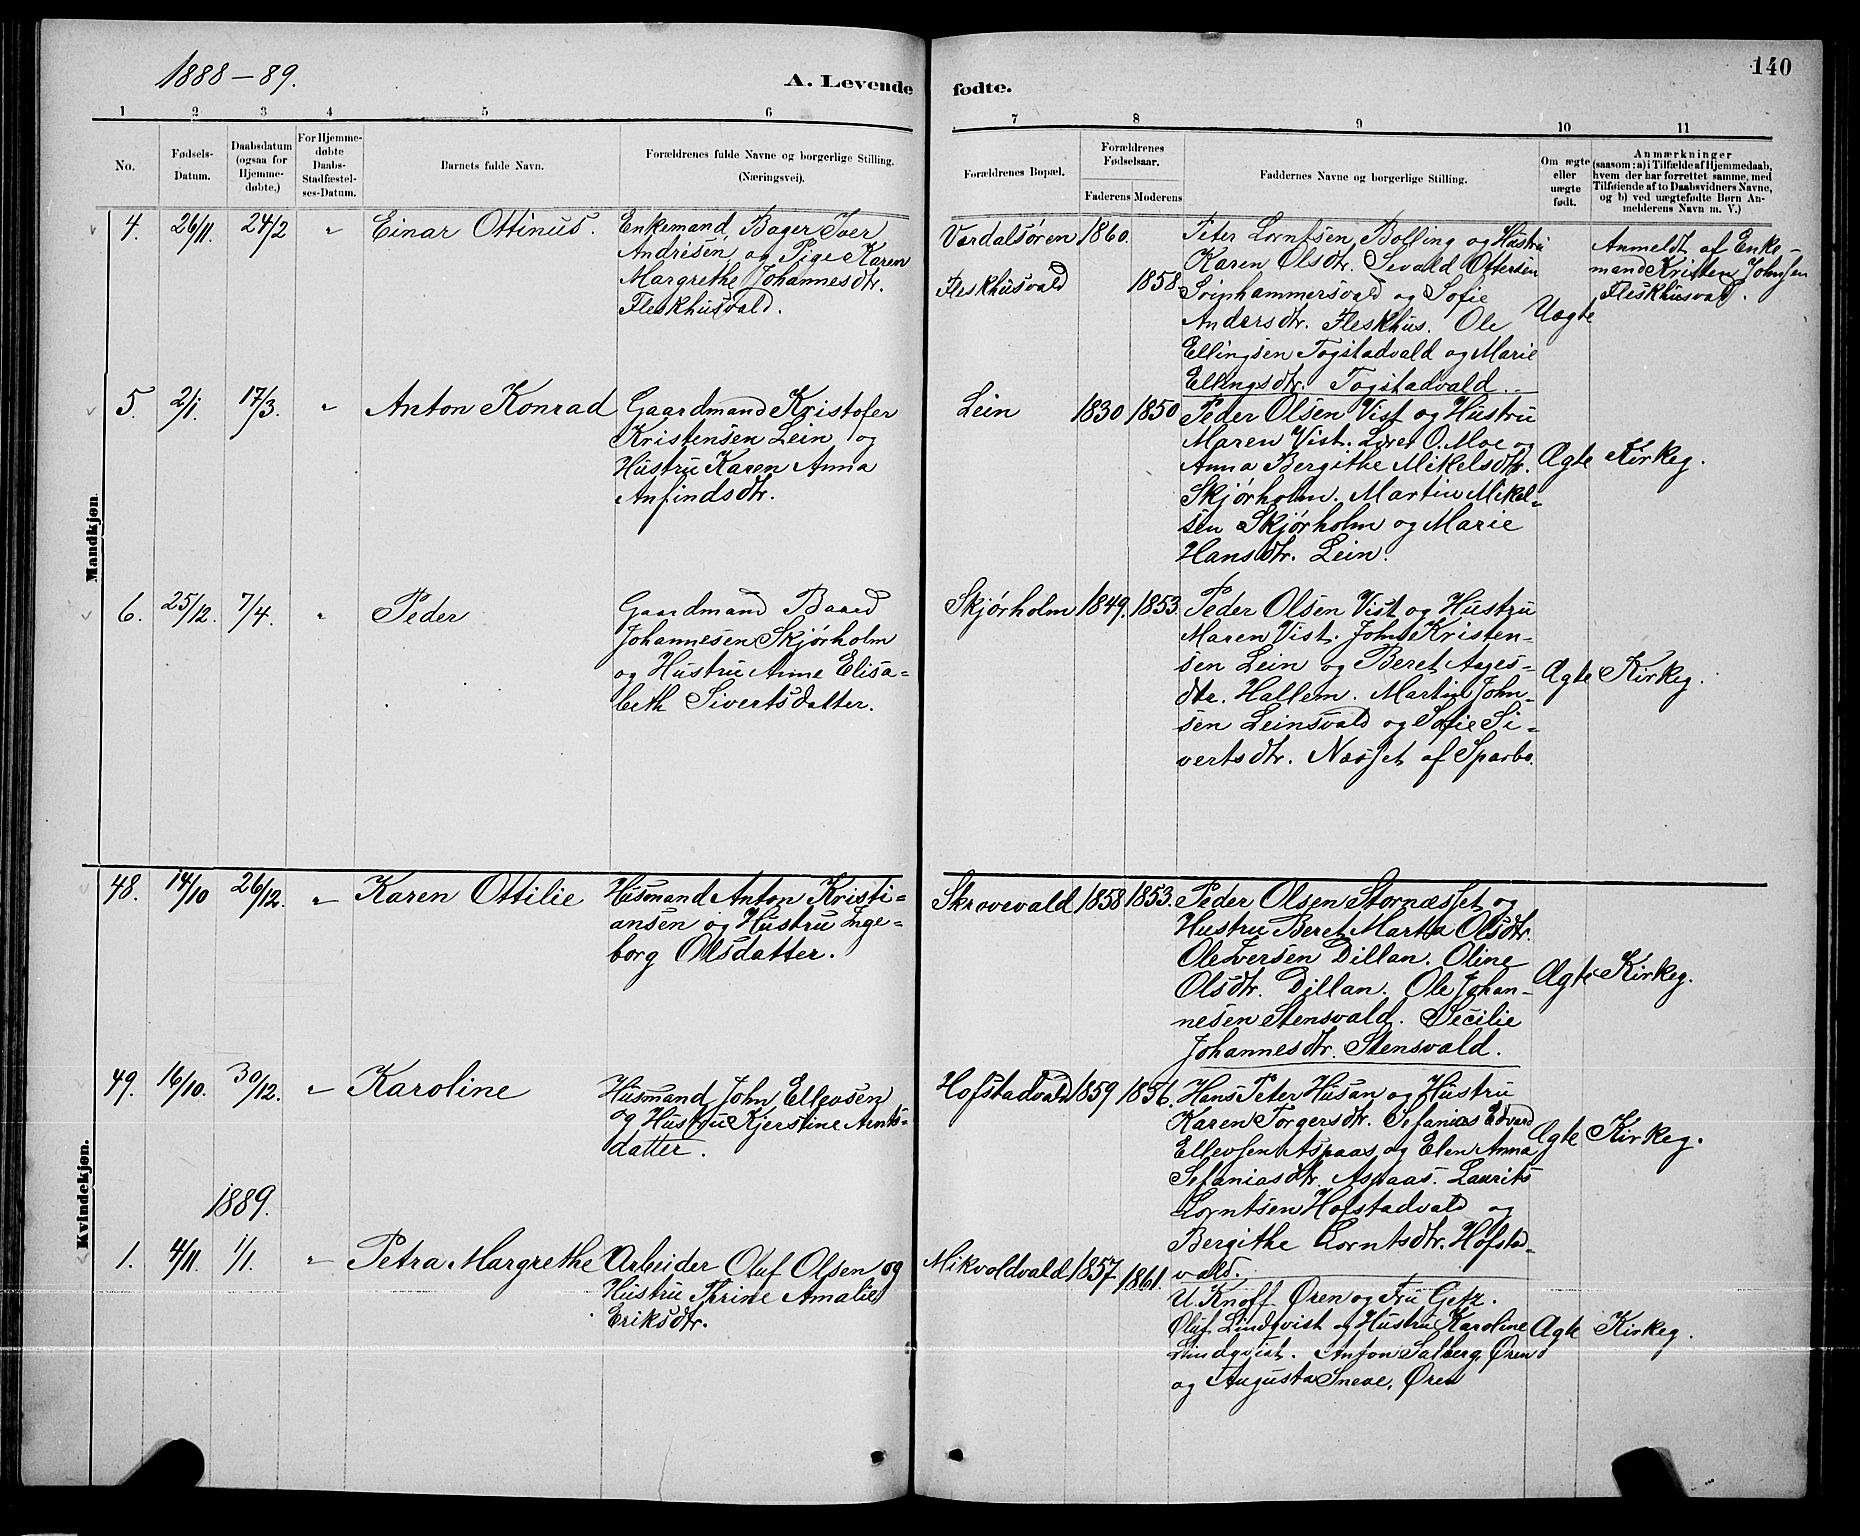 1888-89.
A. Levende fødte.
140
1 2 3 4 5 6 7 8 9 10 11
No.
Fødsels-
Datum.
Daabsdatum
(ogsaa for
Hjemme-
døbte.)
For Hjemme-
døbte
Daabs-
Stadfæstel-
ses-Datum.
Barnets fulde Navn.
Forældrenes fulde Navne og borgerlige Stilling.
(Næringsvei).
Forældrenes Bopæl.
Forældrenes
Fødselsaar.
Faderens Moderens
Faddernes Navne og borgerlige Stilling.
Om ægte
eller
uægte
født.
Anmærkninger
(saasom: a) i Tilfælde af Hjemmedaab,
hvem der har forrettet samme, med
Tilføiende af to Daabsvidners Navne,
og b) ved uægtefødte Børn An-
melderens Navn m. V.)
Mandkjøn
4. 26/11. 24/2 " Einar Ottinus.
Enkemand, Bager Iver
Andrisen, og Pige Karen
Margrethe Johannesdtr.
Fleskhusvald.
Værdalsøren 1860.
Fleskhusvald 1858.
Peter Lorntsen Bolling og Hustru
Karen Olsdtr. Sevald Ottersen
Svinhammersvald og Sofie
Andersdtr. Fleskhus. Ole
Ellingsen Togstadvald og Marie
Ellingsdtr. Togstadvald.
Uægte
Anmeldt af Enke-
mand Kristen Johnsen
Fleskhusvald.
5. 2/1. 17/3. " Anton Konrad
Gaardmand Kristofer
Kristensen Lein og
Hustru Karen Anna
Anfindsdtr.
Lein 1830 1850
Peder Olsen Vist og Hustru
Maren Vist. O. Moe og
Anna Bergithe Mikelsdtr.
Skjørholm. Martin Mikel-
sen Skjørholm og Marie
Hansdtr. Lein.
Ægte Kirkeg.
6. 25/12. 7/4. " Peder
Gaardmand Baard
Johannesen Skjørholm
og Hustru Anne Elisa-
beth Sivertsdatter.
Skjørholm 1849. 1853.
Peder Olsen Vist og Hustru
Maren Vist. John Kristen-
sen Lein og Beret Aages-
dtr. Hallem. Martin John-
sen Leinsvald og Sofie Si-
vertsdtr. Næsset af Sparbo.
Ægte Kirkeg.
Kvindekjøn.
48. 14/10 26/12. " Karen Ottilie
Husmand Anton Kristi-
ansen og Hustru Inge-
borg Olsdatter.
Skrovevald 1858 1853.
Peder Olsen Stornæsset og
Hustru Beret Marta Olsdtr.
Ole Iversen Dillan. Oline
Olsdtr. Dillan. Ole Johan-
nesen Stensvald. Cecilie
Johannesdtr. Stensvald.
Ægte Kirkeg.
49. 16/10. 30/12. " Karoline
Husmand John Ellevsen
og Hustru Kjerstine Arnts-
datter.
Hofstadvald 1859 1856.
Hans Peter Husan og Hustru
Karen Torgersdtr. Sefanias Edvard
Ellevsen Aspaas og Elen Anna
Sefaniasdtr. Aspaas. Laurits
Lorntsen Hofstadvald og
Bergithe Lorntsdtr. Hofstad-
vald.
Ægte Kirkeg.
1889.
1. 4/11. 1/1. " Petra Margrethe
Arbeider Oluf Olsen og
Hustru Trine Amalie
Eriksdtr.
Mikvoldvald 1857. 1861.
U. Knoff Øren og Fru Getz.
Oluf Lindqvist og Hustru Karoline
Lindqvist. Anton Salberg, Øren
og Augusta Sneve, Øren
Ægte Kirkeg.